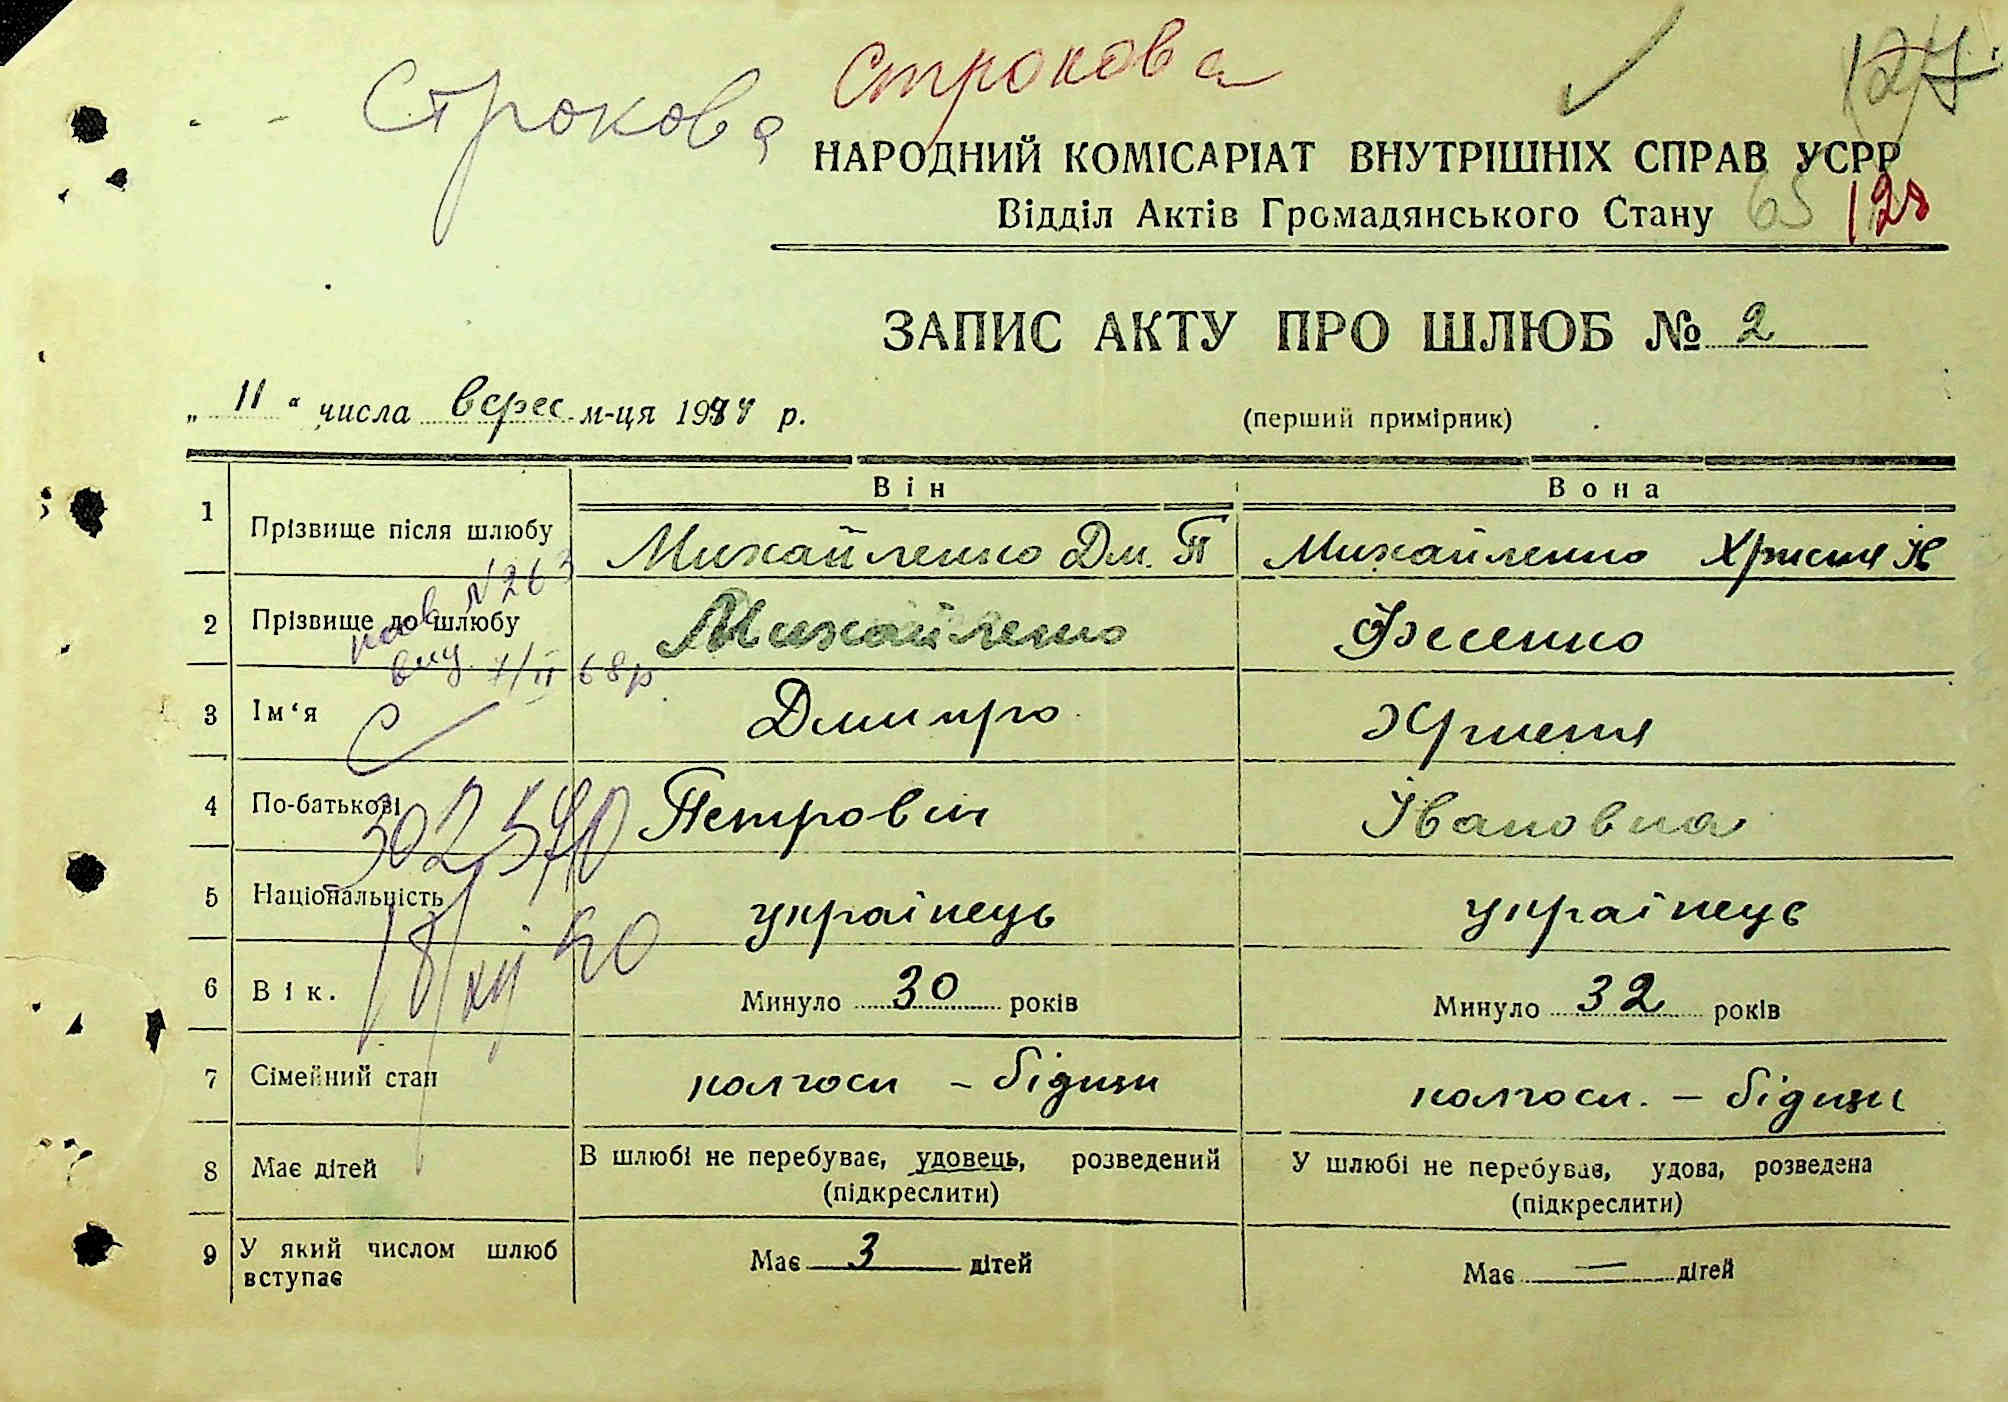 Строкова
Строкова
127
НАРОДНИЙ КОМІСАРІАТ ВНУТРІШНІХ СПРАВ УСРР
Відділ Актів Громадянського Стану 65 128
ЗАПИС АКТУ ПРО ШЛЮБ № 2
„ 11 “ числа верес м-ця 19 р.
(перший примірник)
Він Вона
1 Прізвище після шлюбу Михайленко Дм. П Михайленко Христя Ів
N 263
2 Прізвище до шлюбу Михайленко Фесенко
вид. 7/II 68р
3 Ім‘я Дмитро Христя
4 По-батькові Петровіч Івановна
302540
5 Національність українець українець
18/XII 50
6 Вік. Минуло 30 років Минуло 32 років
7 Сімейний стан колгосп - бідняк колгосп. - бідняк
8 Має дітей В шлюбі не перебуває, удовець, розведений У шлюбі не перебуває, удова, розведена
(підкреслити) (підкреслити)
9 У який числом шлюб вступає Має 3 дітей Має — дітей